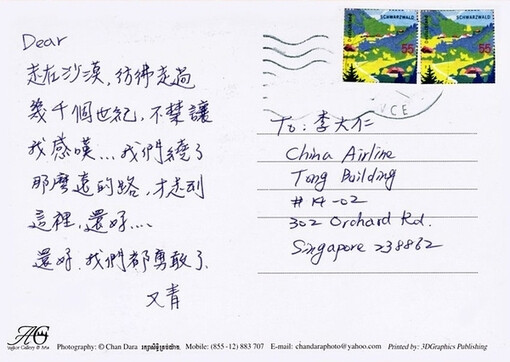 Dear
走在沙漠，彷彿走過
幾千個世紀，不禁讓
我感嘆...我們繞了
那麼遠的路，才走到
這裡，還好....
還好，我們都勇敢了.
又青
SCHWARZWALD
55
SCHWARZWALD
55
To: 李大仁
China Airline
Tong Building
#14-02
302 Orchard Rd.
Singapore 238862
AG
Photography: © Chan Dara
Mobile: (855 -12) 883 707
E-mail: chandaraphoto@yahoo.com
Printed by: 3DGraphics Publishing